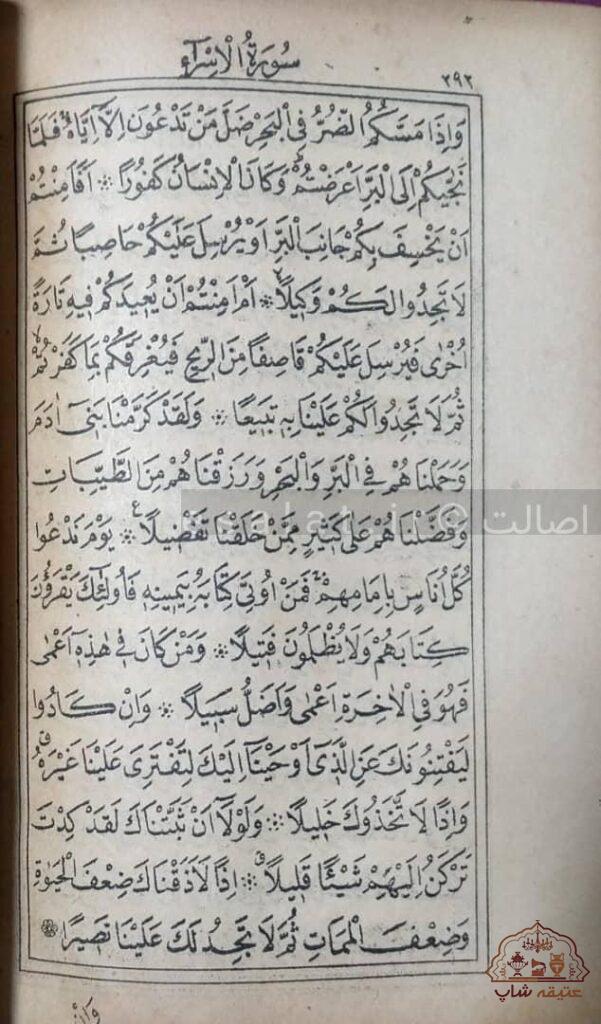 سُورَةُ الْاِسْرَآءِ
٢٩٢
وَاِذَا مَسَّكُمُ الضُّرُّ فِى الْبَحْرِ ضَلَّ مَنْ تَدْعُونَ اِلَّآ اِيَّاهُۚ فَلَمَّا
نَجّٰيكُمْ اِلَى الْبَرِّ اَعْرَضْتُمْۜ وَكَانَ الْاِنْسَانُ كَفُورًا ۞ اَفَاَمِنْتُمْ
اَنْ يَخْسِفَ بِكُمْ جَانِبَ الْبَرِّ اَوْ يُرْسِلَ عَلَيْكُمْ حَاصِبًا ثُمَّ
لَا تَجِدُوا لَكُمْ وَكِيلًاۙ ۞ اَمْ اَمِنْتُمْ اَنْ يُعِيدَكُمْ فِيهِ تَارَةً
اُخْرٰى فَيُرْسِلَ عَلَيْكُمْ قَاصِفًا مِنَ الرِّيحِ فَيُغْرِقَكُمْ بِمَا كَفَرْتُمْۙ
ثُمَّ لَا تَجِدُوا لَكُمْ عَلَيْنَا بِهِ تَبِيعًا ۞ وَلَقَدْ كَرَّمْنَا بَنِىٓ اٰدَمَ
وَحَمَلْنَاهُمْ فِى الْبَرِّ وَالْبَحْرِ وَرَزَقْنَاهُمْ مِنَ الطَّيِّبَاتِ
وَفَضَّلْنَاهُمْ عَلٰى كَثِيرٍ مِمَّنْ خَلَقْنَا تَفْضِيلًا۟ ۞ يَوْمَ نَدْعُوا
كُلَّ اُنَاسٍ بِاِمَامِهِمْۚ فَمَنْ اُوتِىَ كِتَابَهُ بِيَمِينِهِ فَاُولٰٓئِكَ يَقْرَؤُنَ
كِتَابَهُمْ وَلَا يُظْلَمُونَ فَتِيلًا ۞ وَمَنْ كَانَ فِى هٰذِهِ اَعْمٰى
فَهُوَ فِى الْاٰخِرَةِ اَعْمٰى وَاَضَلُّ سَبِيلًا ۞ وَاِنْ كَادُوا
لَيَفْتِنُونَكَ عَنِ الَّذِىٓ اَوْحَيْنَآ اِلَيْكَ لِتَفْتَرِىَ عَلَيْنَا غَيْرَهُۗ
وَاِذًا لَاتَّخَذُوكَ خَلِيلًا ۞ وَلَوْلَآ اَنْ ثَبَّتْنَاكَ لَقَدْ كِدْتَ
تَرْكَنُ اِلَيْهِمْ شَيْئًا قَلِيلًاۗ ۞ اِذًا لَاَذَقْنَاكَ ضِعْفَ الْحَيٰوةِ
وَضِعْفَ الْمَمَاتِ ثُمَّ لَا تَجِدُ لَكَ عَلَيْنَا نَصِيرًا ۞
وَاِنْ
اصالت ©
عتیقه شاپ